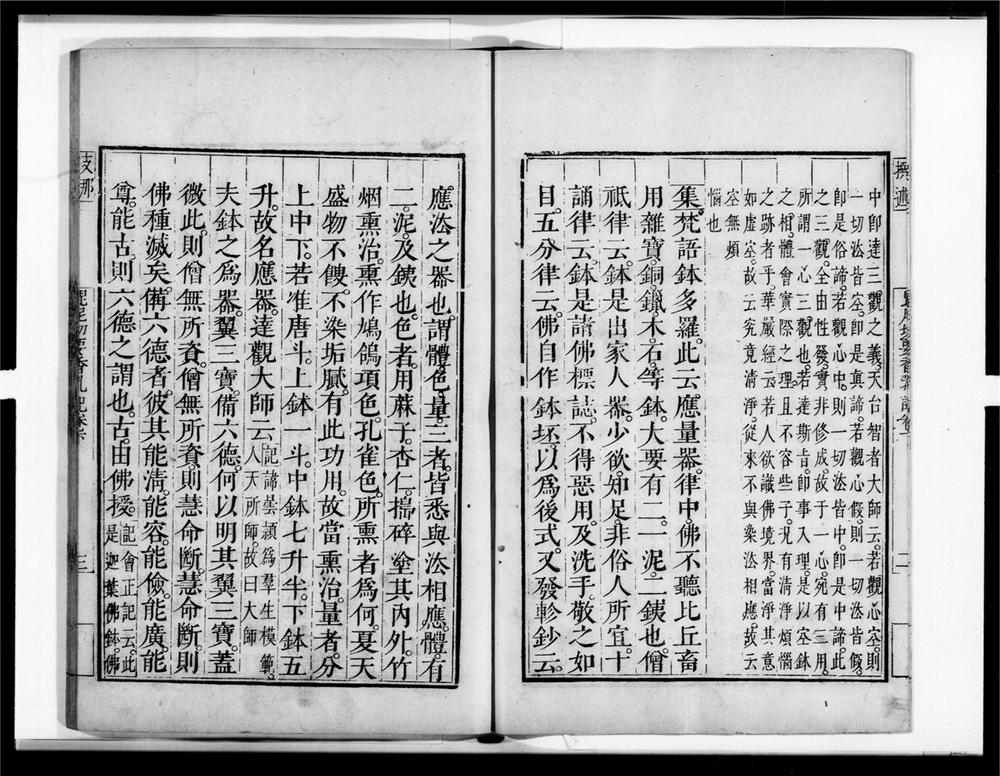 中即達三觀之義。天台智者大師云。若觀心空。則
一切法皆空。即是真諦。若觀心假。則一切法皆假。
即是俗諦。若觀心中。則一切法皆中。即是中諦。此
之三觀。全由性發。實非修成。故于一心。宛有三用。
所謂一心三觀也。若達斯旨。即事入理。是以空鉢
之相。體會實際之理。且不容些子。況有清淨煩惱
之跡者乎。華嚴經云。若人欲識佛境界。當淨其意
如虛空。故云究竟清淨。從來不與染法相應。故云
空無煩
惱也
集。梵語鉢多羅。此云應量器。律中佛不聽比丘畜
用雜寶。銅。鑞。木。石等鉢。大要有二。一泥。二鐵也。僧
祇律云。鉢是出家人器。少欲知足。非俗人所宜。十
誦律云。鉢是諸佛標誌。不得惡用。及洗手。敬之如
目。五分律云。佛自作鉢坯。以為後式。又發軫鈔云。
應法之器也。謂體。色。量。三者。皆悉與法相應。體。有
二。泥。及鐵也。色者。用蔴子。杏仁。搗碎塗其內外。竹
烟熏治。熏作鳩鴿項色。孔雀色。所熏者為何。夏天
盛物不餿。不染垢膩。有此功用。故當熏治。量者。分
上中下。若准唐斗。上鉢一斗。中鉢七升半。下鉢五
升。故名應器。達觀大師云。記諦曇頴為羣生模範。人天所師。故曰大師
夫鉢之為器。翼三寶。備六德。何以明其翼三寶。蓋
微此。則僧無所資。僧無所資。則慧命斷。慧命斷。則
佛種滅矣。備六德者。彼其能清。能容。能儉。能廣。能
尊。能古。則六德之謂也。古。由佛授。記會正記云。此是迦葉佛鉢。佛
撰述
二
支那
三